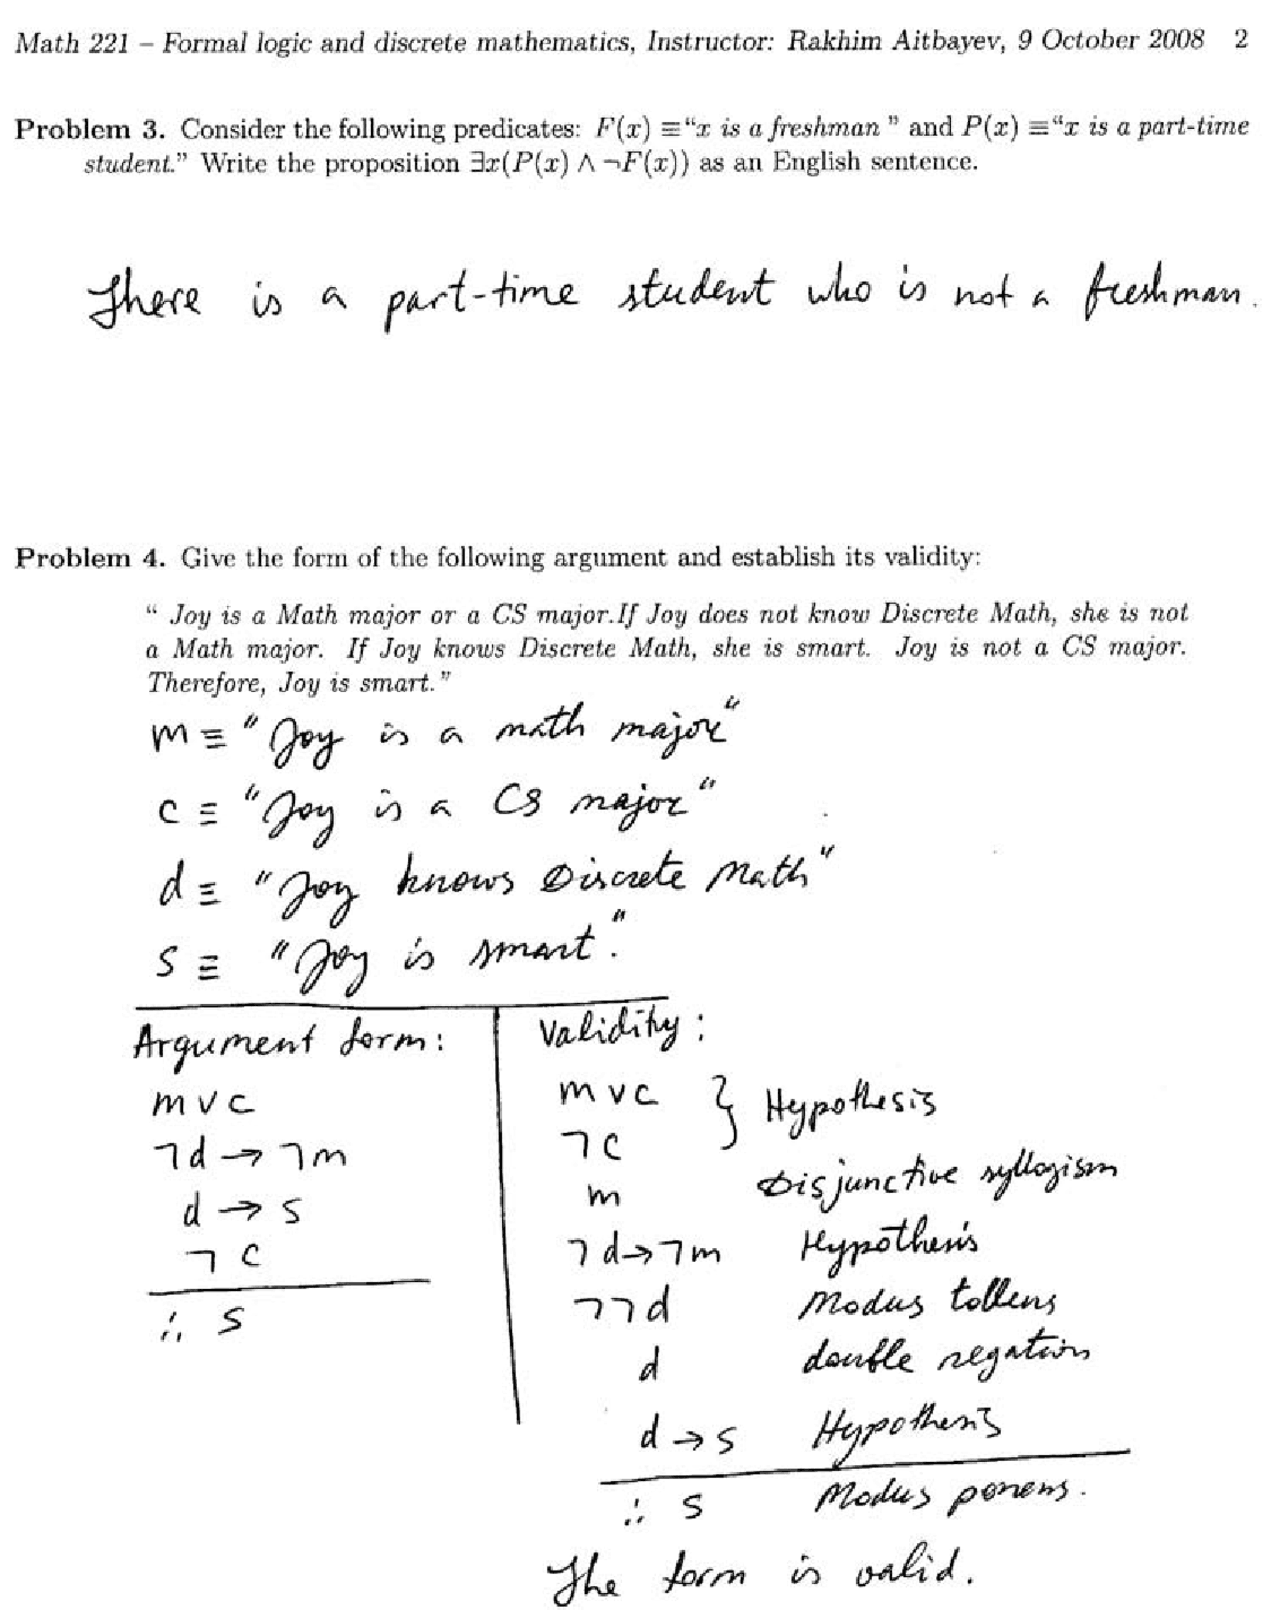 Math 221 – Formal logic and discrete mathematics, Instructor: Rakhim Aitbayev, 9 October 2008 2
Problem 3. Consider the following predicates: F(x) ≡“x is a freshman ” and P(x) ≡“x is a part-time
student.” Write the proposition ∃x(P(x) ∧ ¬F(x)) as an English sentence.
There is a part-time student who is not a freshman.
Problem 4. Give the form of the following argument and establish its validity:
“ Joy is a Math major or a CS major.If Joy does not know Discrete Math, she is not
a Math major. If Joy knows Discrete Math, she is smart. Joy is not a CS major.
Therefore, Joy is smart.”
m ≡ "Joy is a math major"
c ≡ "Joy is a CS major"
d ≡ "Joy knows Discrete Math"
s ≡ "Joy is smart."
Argument form:
m ∨ c
¬d → ¬m
d → s
¬c
∴ s
Validity:
m ∨ c } Hypothesis
¬c
m Disjunctive syllogism
¬d → ¬m Hypothesis
¬¬d Modus tollens
d double negation
d → s Hypothesis
∴ s Modus ponens.
The form is valid.